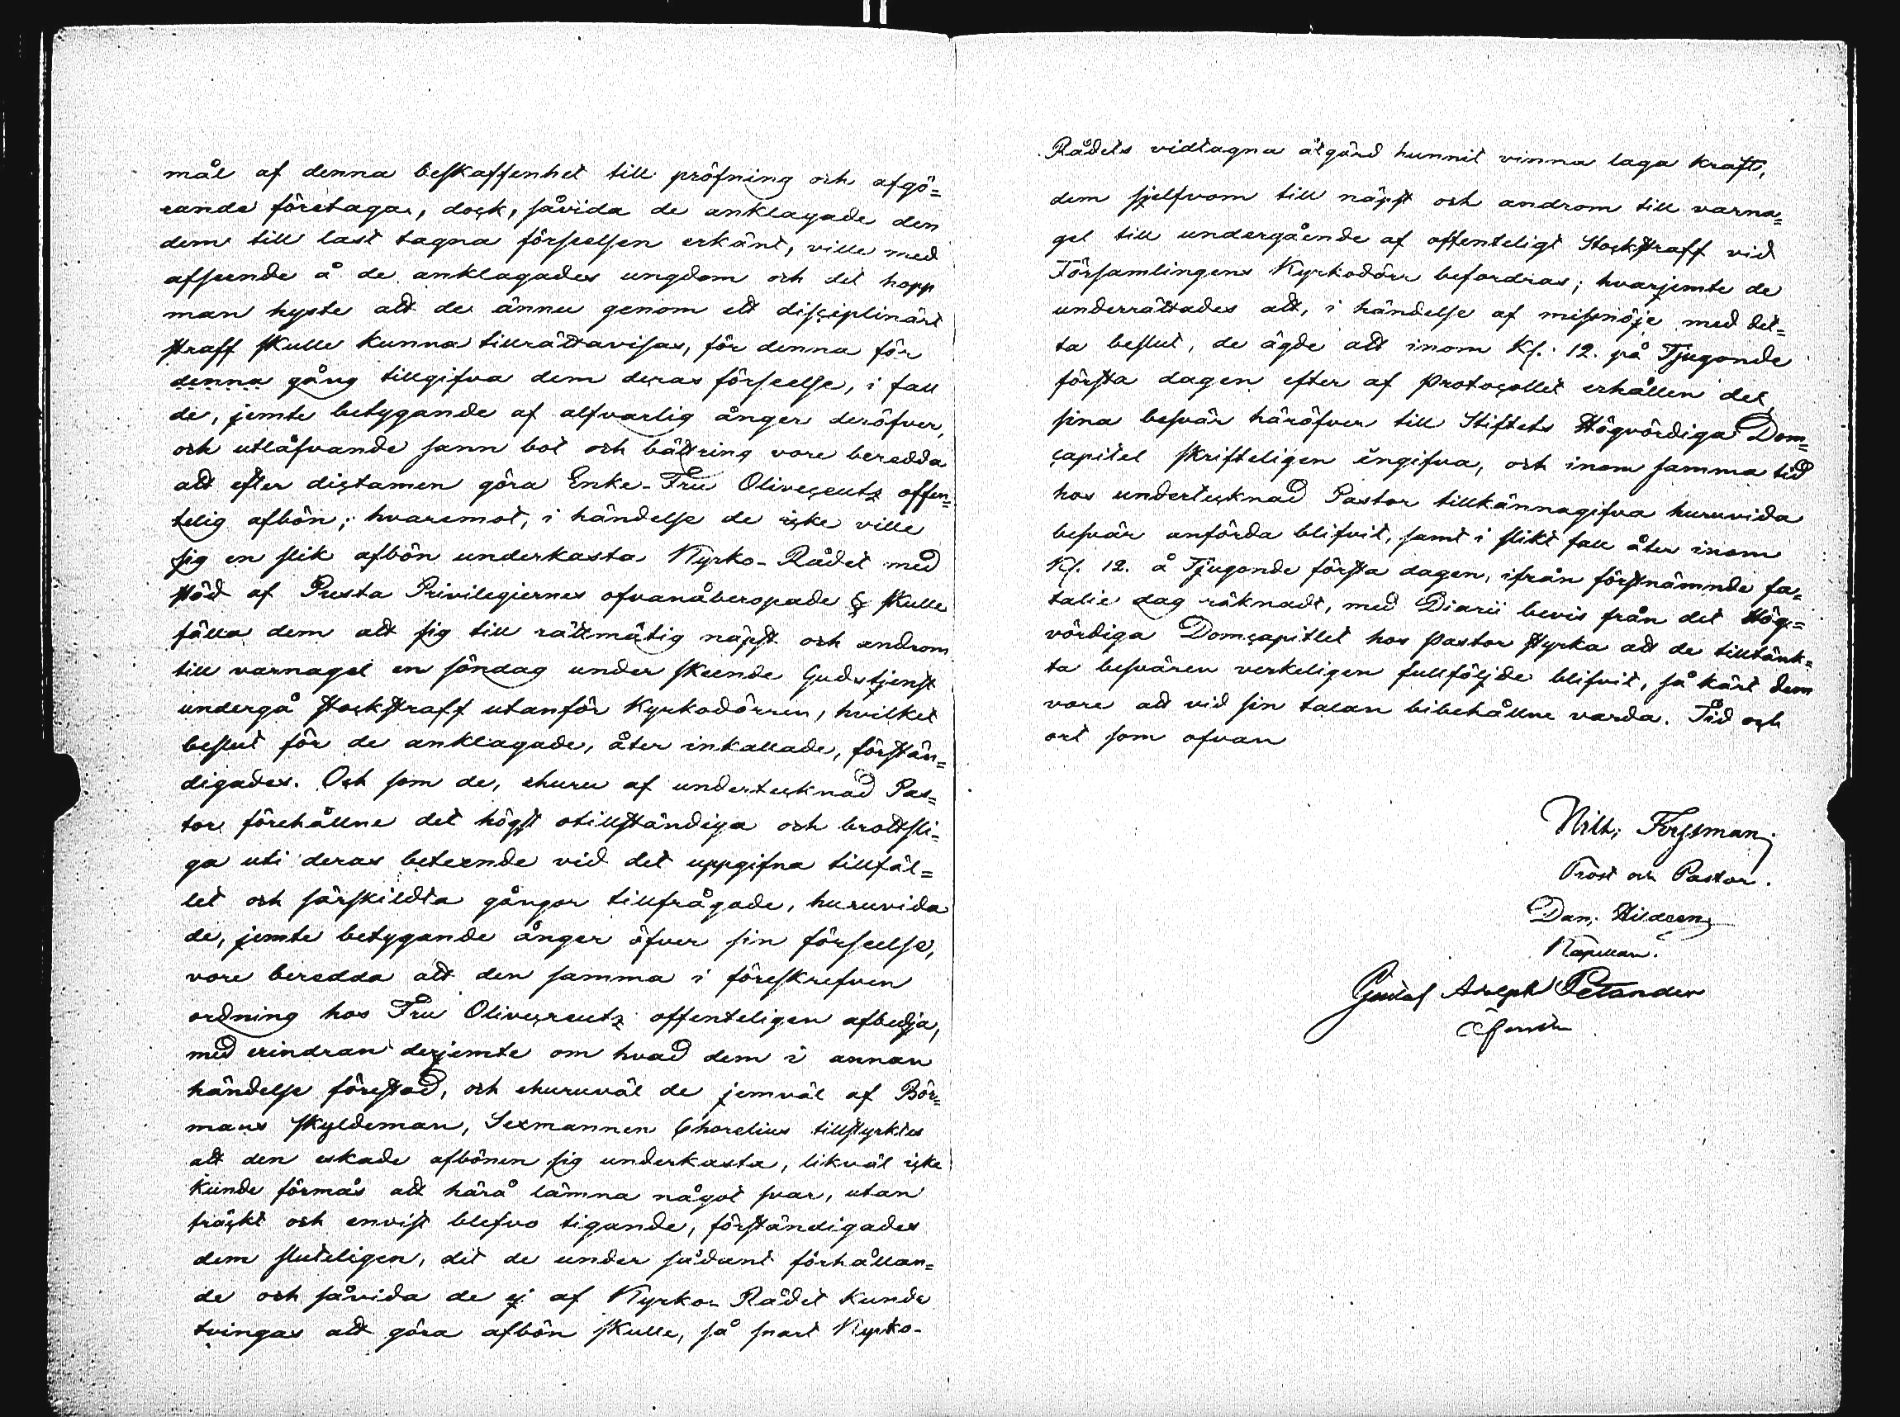 mål af denna beskaffenhet till pröfning och afgö=
rande företaga, dock, såvida de anklagade den
dem till last tagna förseelsen erkänt, ville med
afseende å de anklagades ungdom och det hopp
man hyste att de ännu genom ett disciplinärt
straff skulle kunna tillrättavisas, för denna för
denna gång tillgifva dem deras förseelse, i fall
de, jemte betygande af alfvarlig ånger deröfver,
och utlåfvande sann bot och bättring vore beredda
att efter dictamen göra Enke-Fru Olivecreutz offen=
telig afbön; hvaremot, i händelse de icke ville
sig en slik afbön underkasta Kyrko-Rådet med
stöd af Presta Privilegiernes ofvanåberopade § skulle
fälla dem att sig till rättmätig näpst och androm
till varnagel en söndag under skeende Gudstjenst
undergå stockstraff utanför Kyrkodörren, hvilket
beslut för de anklagade, åter inkallade, förstän=
digades. Och som de, ehuru af undertecknad Pas=
tor förehållne det högst otillständiga och brottsli=
ga uti deras beteende vid det uppgifna tillfäl=
let och särskildta gångor tillfrågade, huruvida
de, jemte betygande ånger öfver sin förseelse,
vore beredda att den samma i föreskrefven
ordning hos Fru Olivecreutz offenteligen afbedja,
med erindran derjemte om hvad dem i annan
händelse förestod, och ehuruväl de jemväl af Bör=
mans skyldeman, Sexmannen Chorelius tillstyrktes
att den eskade afbönen sig underkasta, likväl icke
kunde förmås att härå lämna något svar, utan
träckt och envist blefvo tigande, förständigades
dem sluteligen, det de under sådant förhållan=
de och såvida de ej af Kyrko-Rådet kunde
tvingas att göra afbön skulle, så snart Kyrko-
Rådets vidtagna åtgärd hunnit vinna laga kraft,
dem sjelfvom till näpst och androm till varna=
gel till undergående af offenteligt stockstraff vid
Församlingens Kyrkodörr befordras; hvarjemte de
underrättades att, i händelse af missnöje med det=
ta beslut, de ägde att inom Kl. 12. på Tjugonde
första dagen efter af Protocollet erhållen del,
sina besvär häröfver till Stiftets Högvördiga Dom=
capitel skrifteligen ingifva, och inom samma tid
hos undertecknad Pastor tillkännagifva huruvida
besvär anförda blifvit, samt i slikt fall åter inom
Kl. 12. å Tjugonde första dagen, ifrån förstnämnde fa=
talie dag räknadt, med Diarii bevis från det Hög=
vördiga Domcapitlet hos Pastor styrka att de tilltänk=
ta besvären verkeligen fullföljde blifvit, så kärt dem
vore att vid sin talan bibehållne varda. Tid och
ort som ofvan
Wilh: Forssman
Prost och Pastor.
Dan: Hildeen
Kapellan.
Gustaf Adolph Petander